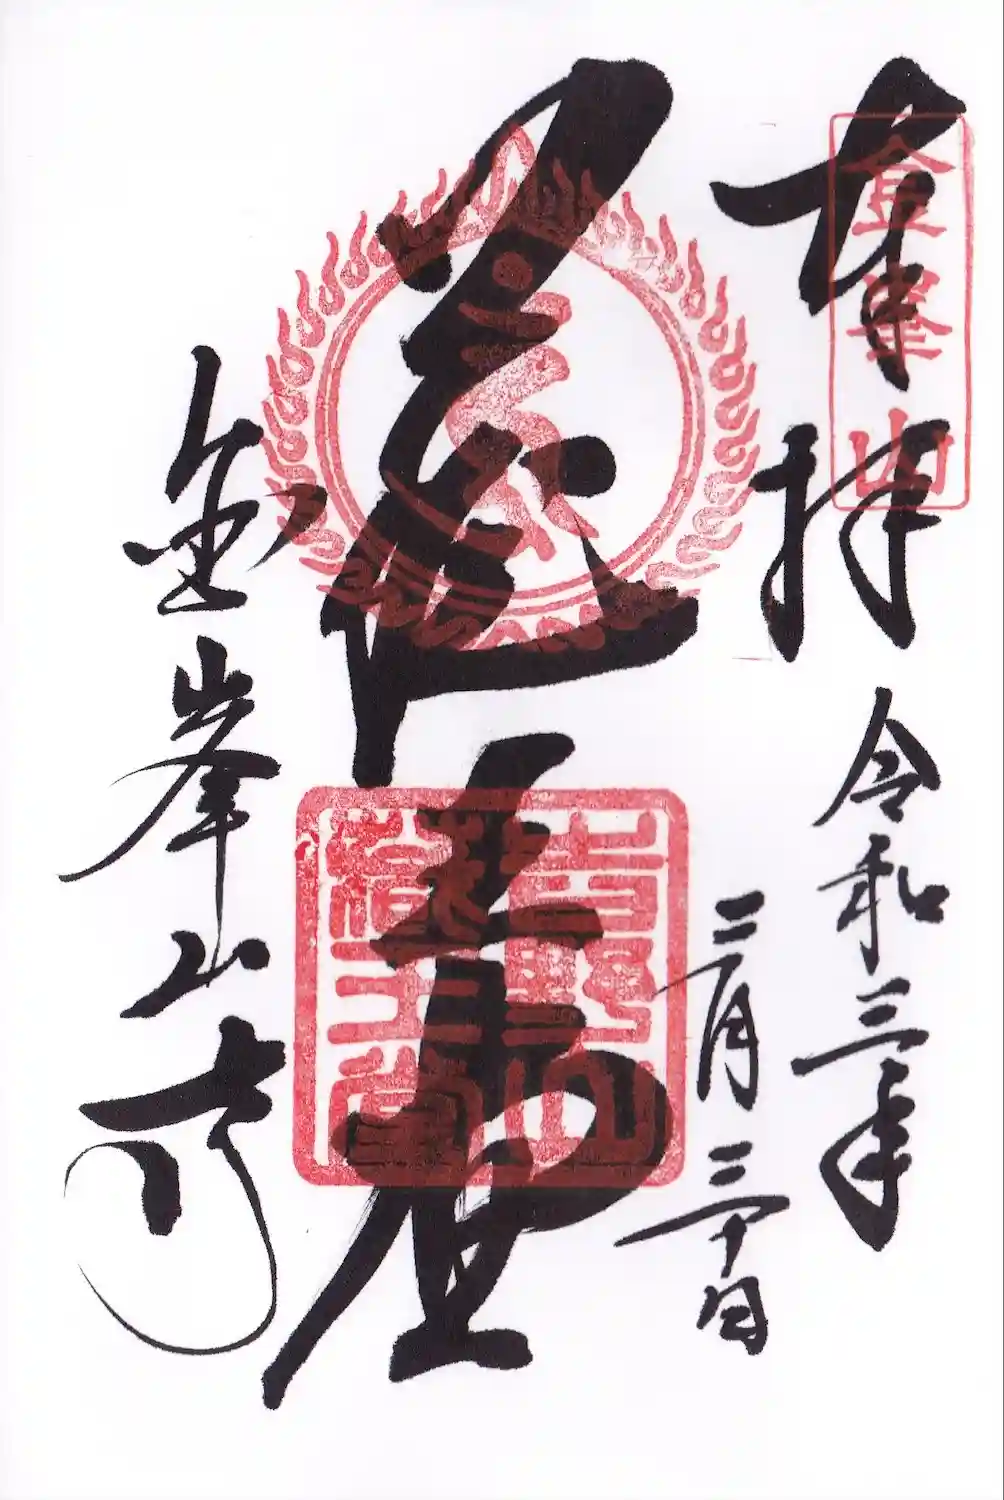 金峯山
奉拝
令和三年
三月三十日
蔵王堂
吉野山
蔵王堂
金峯山寺